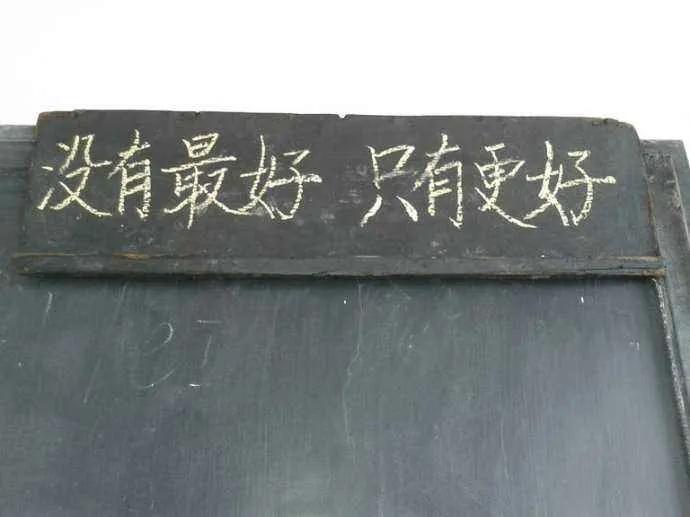 没有最好 只有更好